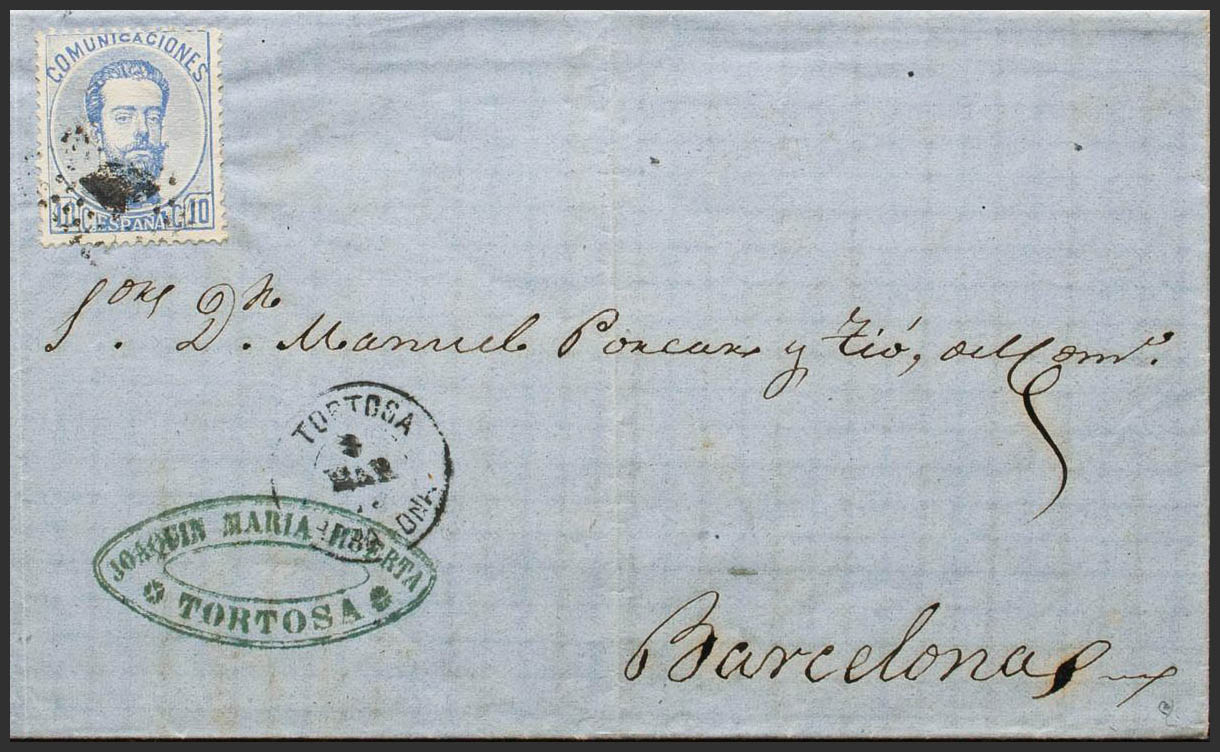 COMUNICACIONES
10 C. ESPAÑA C. 10
Sres. Dn. Manuel Porcar y Tió, del Comº.
TORTOSA
MAR
JOAQUIN MARIA HUERTA
TORTOSA
Barcelona